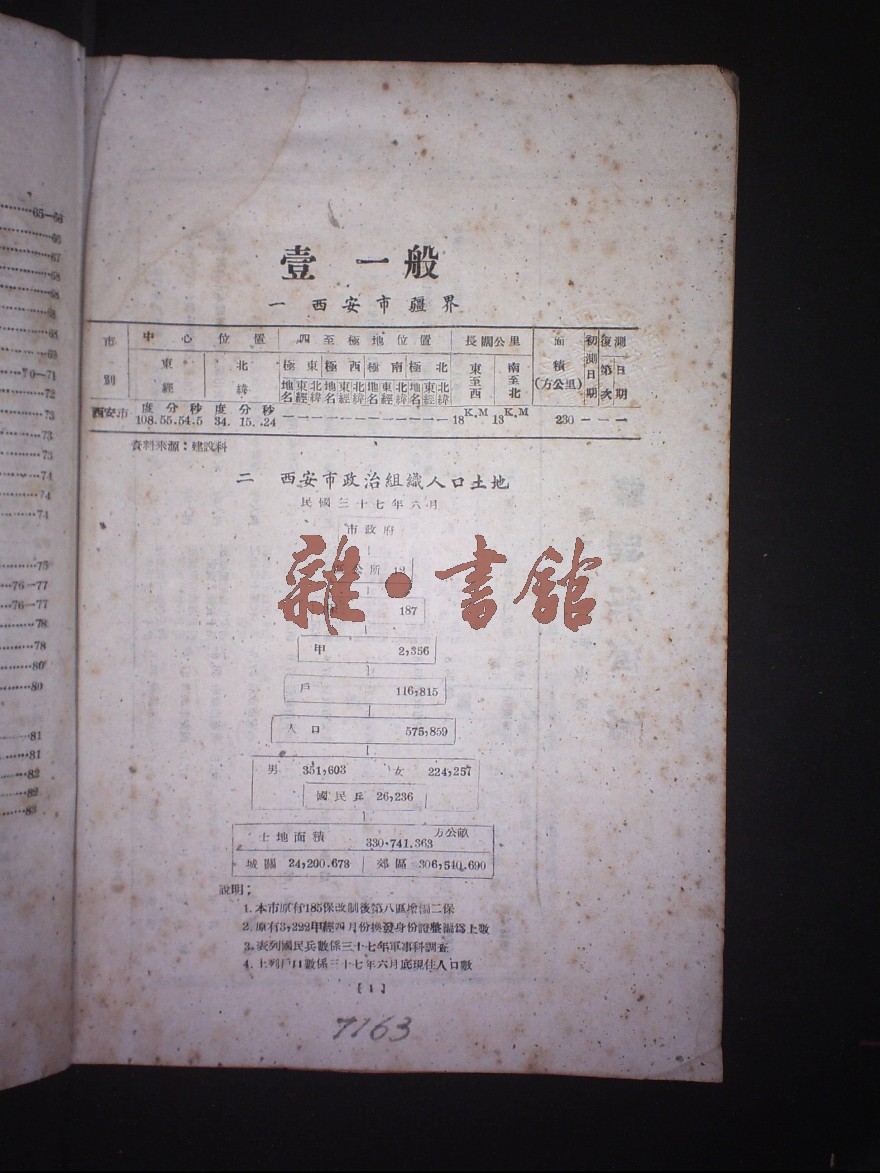 65—66
66
67
68
68
68
68
69
69
70—71
72
73
73
73
73
74
74
74
75
76—77
76—77
78
78
80
80
81
81
82
82
83
壹 一般
一 西安市疆界
市別 中心位置 四至極地位置 長闊公里 面積(方公里) 初測日期 復測
東經 北緯 極東 極西 極南 極北 東至西 南至北 第次 日期
地名 東經 北緯 地名 東經 北緯 地名 東經 北緯 地名 東經 北緯
度 分 秒 度 分 秒 K.M K.M
西安市 108.55.54.5 34. 15. .24 — — — — — — — — — — — — 18 13 230 — — —
資料來源：建設科
二 西安市政治組織人口土地
民國三十七年六月
市政府
公所 12
187
甲 2,356
戶 116,815
人口 575,859
男 351,603 女 224,257
國民兵 26,236
土地面積 330.741.363 方公畝
城關 24,200.673 郊區 306,540.690
說明：
1. 本市原有185保改制後第八區增編二保
2. 原有3,292甲經四月份換發身份證整編爲上數
3. 表列國民兵數係三十七年軍事科調査
4. 上列戶口數係三十七年六月底現住人口數
[1]
7163
雜·書館